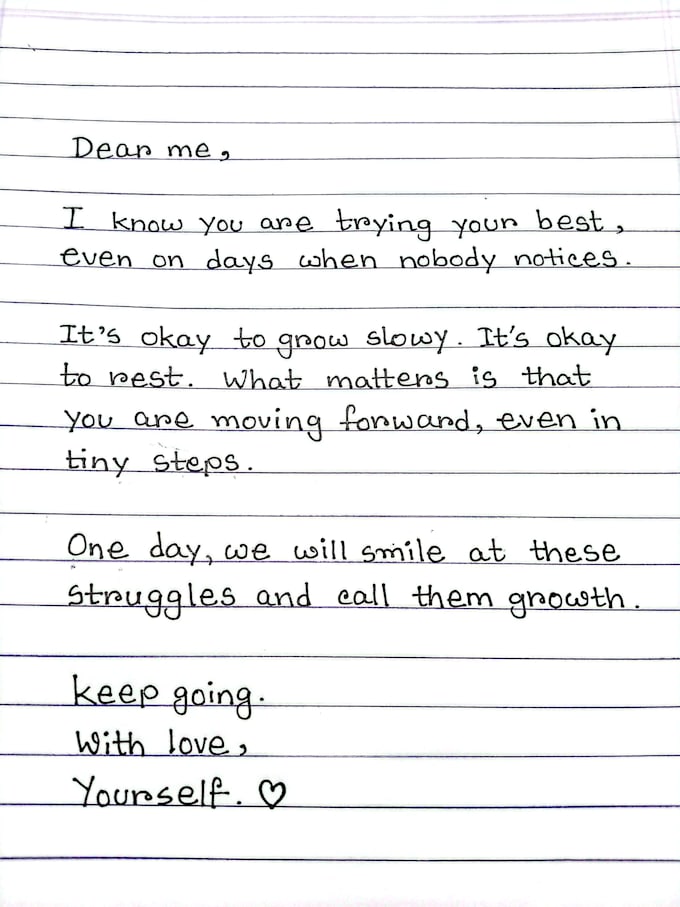 Dear me,
I know you are trying your best,
even on days when nobody notices.
It's okay to grow slowy. It's okay
to rest. What matters is that
you are moving forward, even in
tiny steps.
One day, we will smile at these
struggles and call them growth.
keep going.
With love,
Yourself. ♡